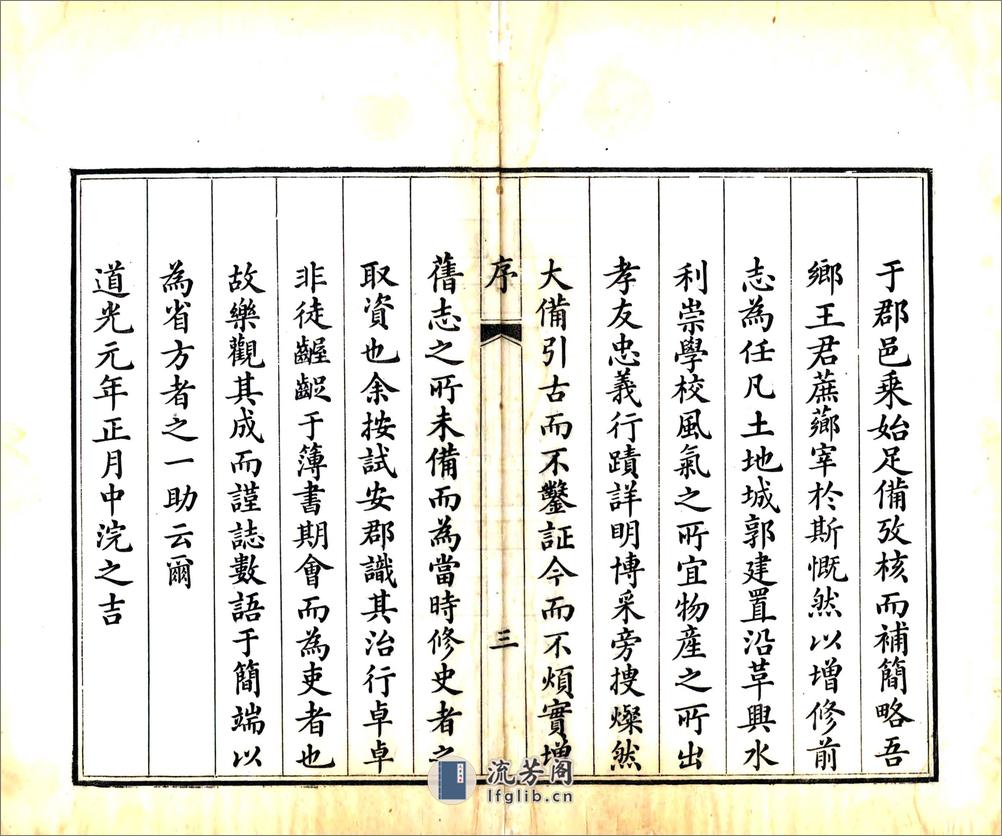 于郡邑乘始足備攷核而補簡略吾
鄉王君蕉薌宰於斯慨然以增修前
志為任凡土地城郭建置沿革興水
利崇學校風氣之所宜物產之所出
孝友忠義行蹟詳明博采旁搜燦然
大備引古而不鑿証今而不煩實增
序
三
舊志之所未備而為當時修史者之
取資也余按試安郡識其治行卓卓
非徒齷齪于簿書期會而為吏者也
故樂觀其成而謹誌數語于簡端以
為省方者之一助云爾
道光元年正月中浣之吉
流芳阁
lfglib.cn